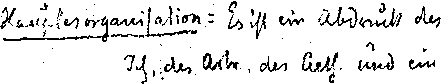 Hauptesorganisation = Es ist ein Abdruck des
Ich, des Astr., des Aeth. und ein